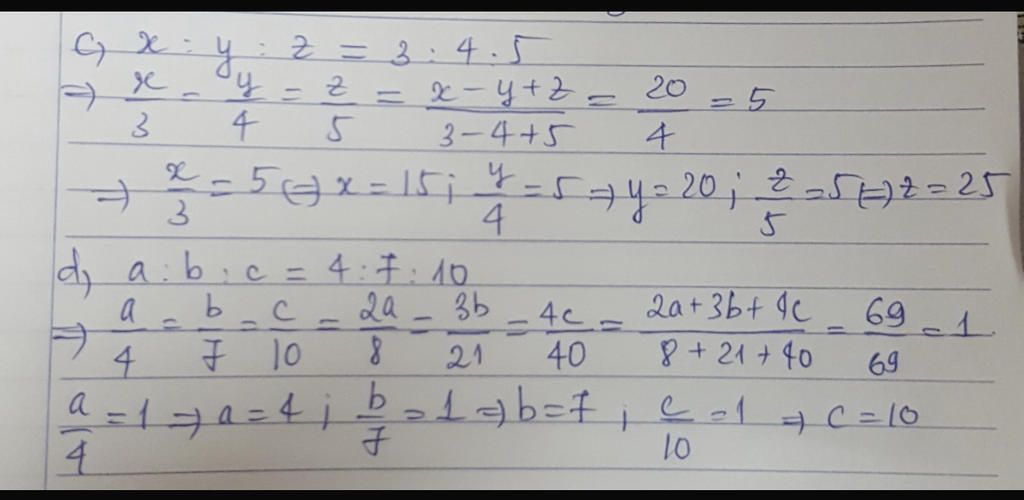 c, x : y : z = 3 : 4 : 5
=> x/3 = y/4 = z/5 = (x-y+z)/(3-4+5) = 20/4 = 5
=> x/3 = 5 (=) x = 15 ; y/4 = 5 => y = 20 ; z/5 = 5 (=) z = 25
d, a : b : c = 4 : 7 : 10
=> a/4 = b/7 = c/10 = 2a/8 = 3b/21 = 4c/40 = (2a+3b+4c)/(8+21+40) = 69/69 = 1.
a/4 = 1 => a = 4 ; b/7 = 1 => b = 7 ; c/10 = 1 => c = 10